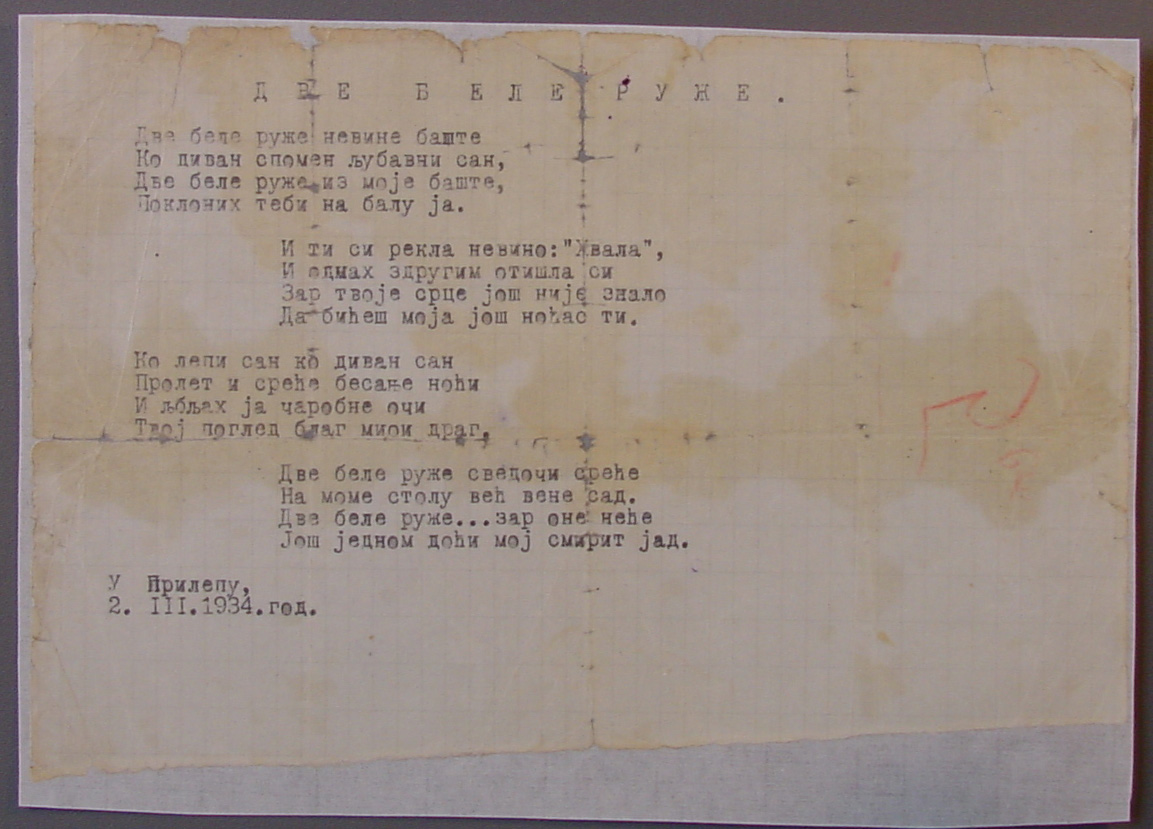 ДВЕ БЕЛЕ РУЖЕ.
Две беле руже невине баште
Ко диван спомен љубавни сан,
Две беле руже из моје баште,
Поклоних теби на балу ја.
И ти си рекла невино:"Хвала",
И одмах здругим отишла си
Зар твоје срце још није знало
Да бићеш моја још ноћас ти.
Ко лепи сан ко диван сан
Пролет и среће бесање ноћи
И љбљах ја чаробне очи
Твој поглед благ мири драг,
Две беле руже сведочи среће
На моме столу већ вене сад.
Две беле руже...зар оне неће
Још једном доћи мој смирит јад.
У Прилепу,
2. III.1934.год.